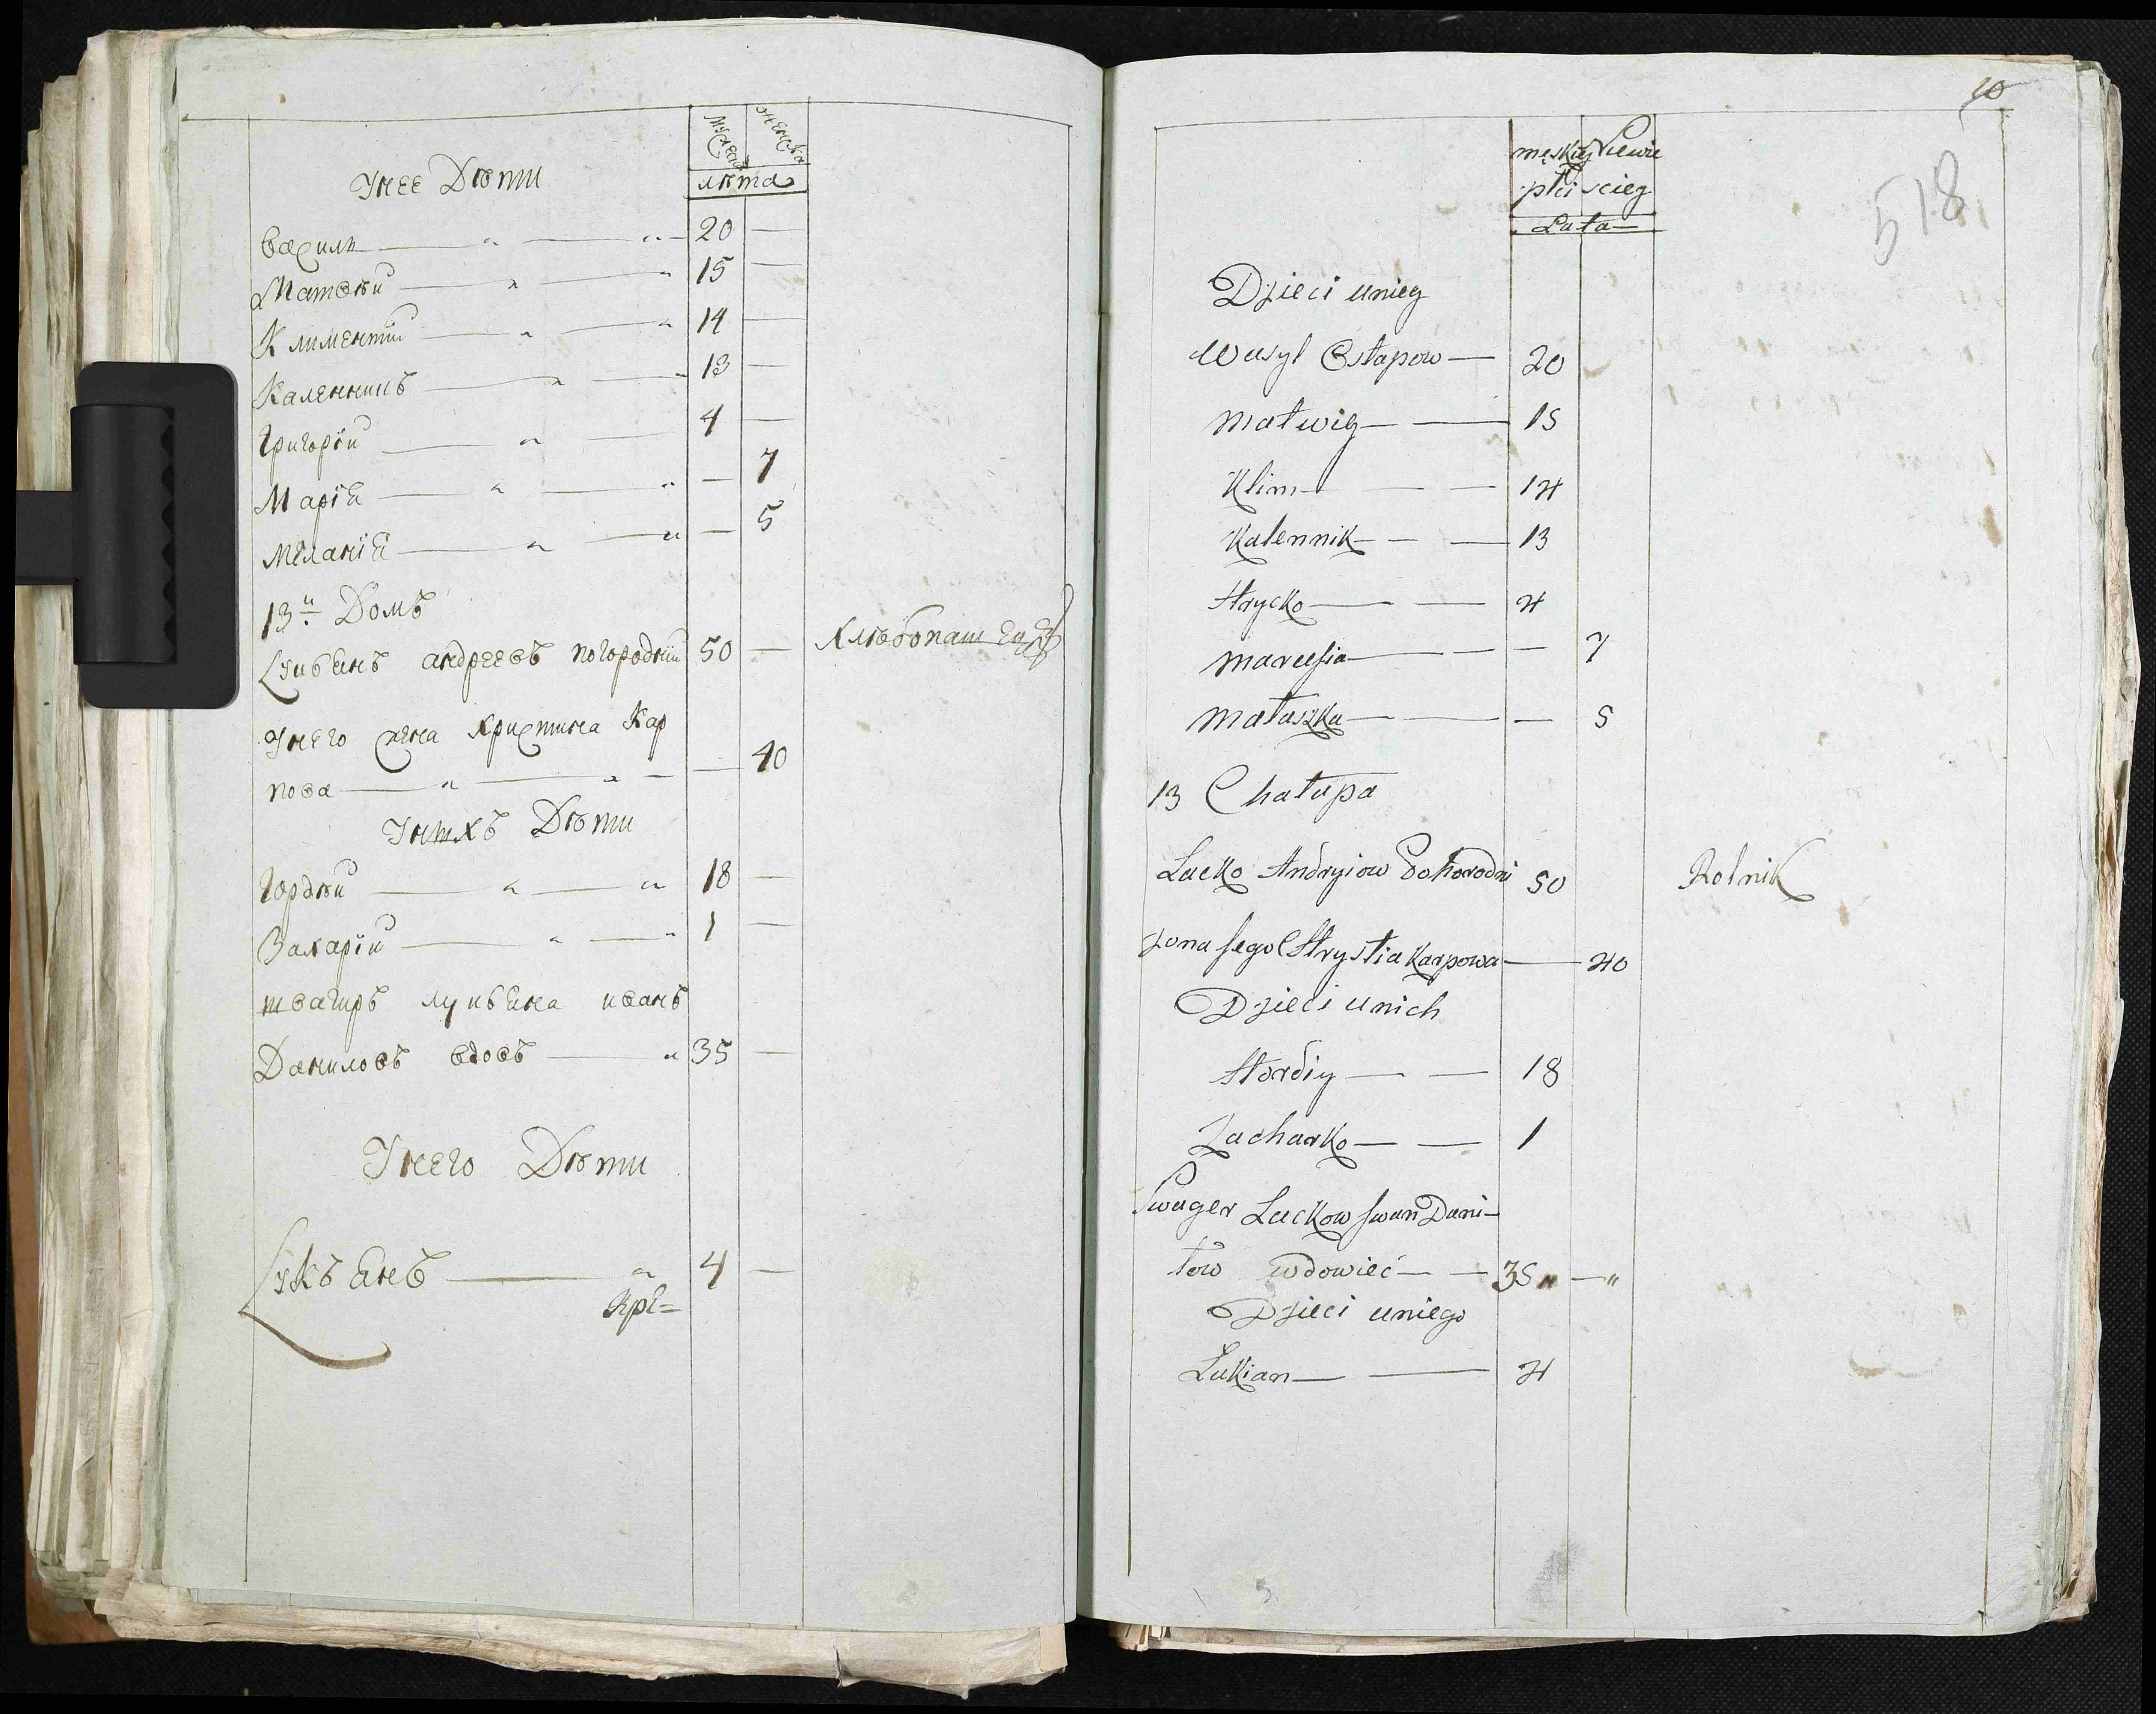 мужеска женска
лѣта
Унее Дѣти
василь 20 —
Матвѣй 15 —
Климентий 14 —
Каленникъ 13 —
Григорїй 4 —
Марїѧ — 7
Меланїѧ — 5
13й Домъ
Лукъѧнъ андреевъ погородний 50 — Хлебопашецъ
Унего жена Христина Кар
пова — 40
Унихъ Дѣти
Гордѣй 18 —
Захарїй 1 —
швагиръ лукъѧна иванъ
Даниловъ вдовъ 35 —
Унего Дѣти
Лукъѧнъ 4 —
Кре=
10
518
męskiey Niewie
płci sciey
Lata
Dzieci uniey
Wasyl Ostapow — 20
Matwiy — 15
Klim — 14
Kalennik — 13
Hrycko — 4
Marusia — 7
Małaszka — 5
13 Chałupa
Lucko Andryiow Pohorodni 50 Rolnik
żona Jego Chrystia Karpowa — 40
Dzieci unich
Hordiy — 18
Zacharko — 1
Swager Luckow Iwan Dani-
łow wdowieć — 35 „ — „
Dzieci uniego
Łukian — 4